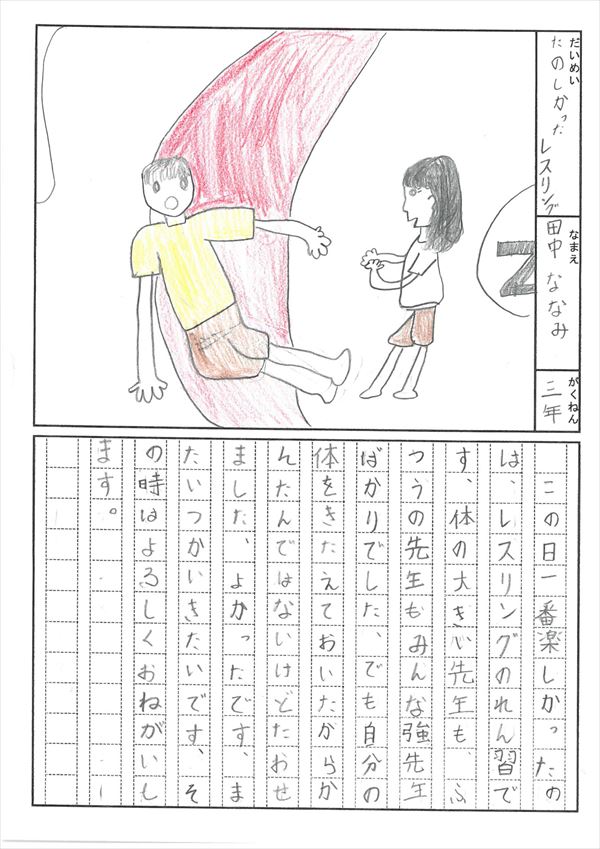 だいめい
たのしかったレスリング
なまえ
田中ななみ
がくねん
三年
この日一番楽しかったの
は、レスリングのれん習で
す、体の大きい先生も、ふ
つうの先生もみんな強先生
ばかりでした、でも自分の
体をきたえておいたからか
んたんではないけどたおせ
ました、よかったです、ま
たいつかいきたいです、そ
の時はよろしくおねがいし
ます。